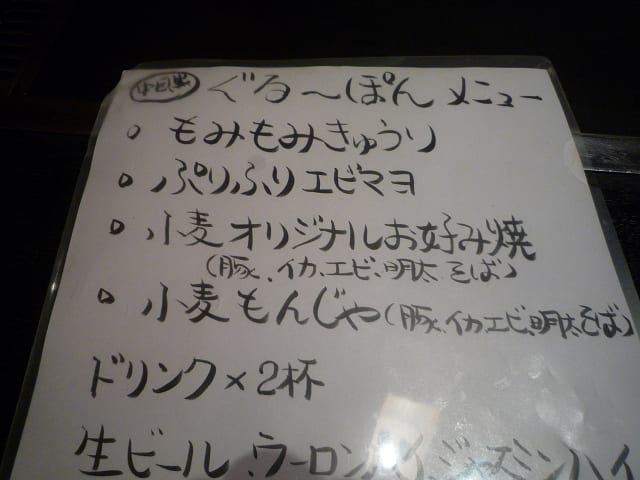 中目黒 ぐる〜ぽん メニュー
○ もみもみきゅうり
○ ぷりふりエビマヨ
○ 小麦オリジナルお好み焼
(豚、イカ、エビ、明太 そば)
○ 小麦もんじゃ(豚、イカエビ、明太そば)
ドリンク×2杯
生ビール、ウーロンハイ、ジャスミンハイ